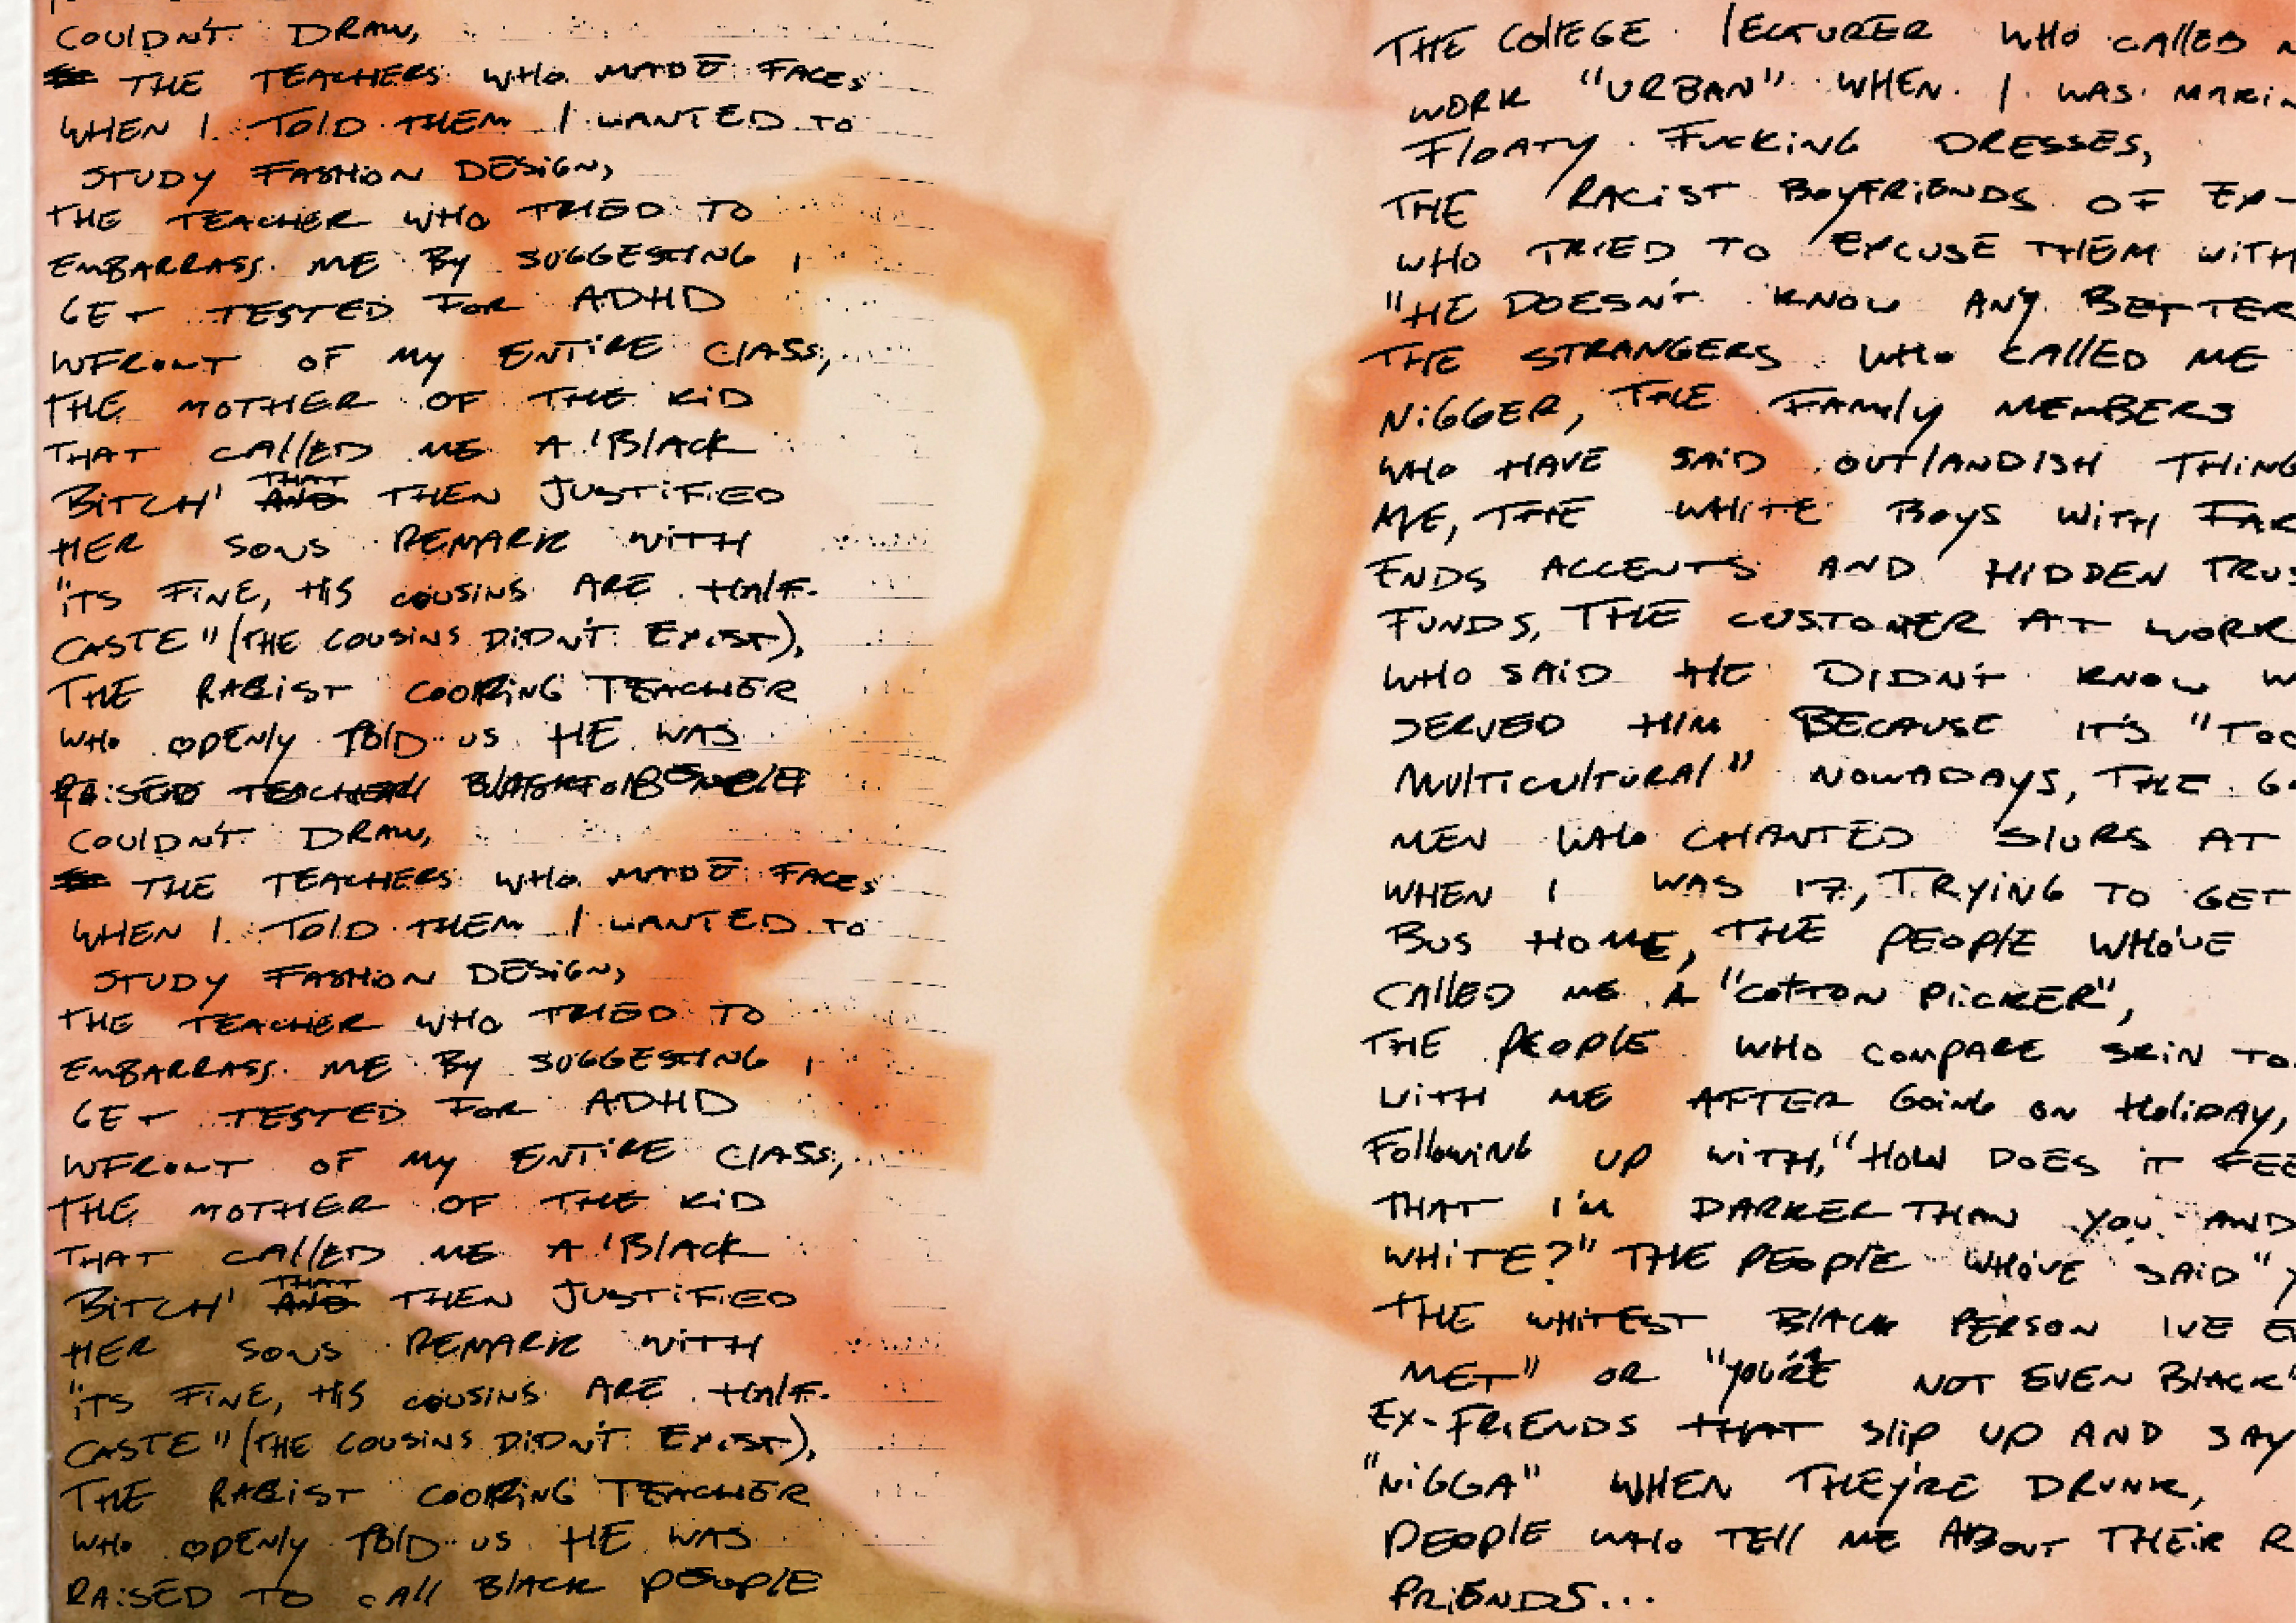 COULDN'T DRAW,
THE TEACHERS WHO MADE FACES
WHEN I TOLD THEM I WANTED TO
STUDY FASHION DESIGN,
THE TEACHER WHO TRIED TO
EMBARRASS ME BY SUGGESTING I
GET TESTED FOR ADHD
INFRONT OF MY ENTIRE CLASS,
THE MOTHER OF THE KID
THAT CALLED ME A 'BLACK
BITCH' THAT THEN JUSTIFIED
HER SONS REMARK WITH
"ITS FINE, HIS COUSINS ARE HALF-
CASTE" (THE COUSINS DIDN'T EXIST),
THE RACIST COOKING TEACHER
WHO OPENLY TOLD US HE WAS
RAISED
COULDN'T DRAW,
THE TEACHERS WHO MADE FACES
WHEN I TOLD THEM I WANTED TO
STUDY FASHION DESIGN,
THE TEACHER WHO TRIED TO
EMBARRASS ME BY SUGGESTING I
GET TESTED FOR ADHD
INFRONT OF MY ENTIRE CLASS,
THE MOTHER OF THE KID
THAT CALLED ME A 'BLACK
BITCH' THAT THEN JUSTIFIED
HER SONS REMARK WITH
"ITS FINE, HIS COUSINS ARE HALF-
CASTE" (THE COUSINS DIDN'T EXIST),
THE RACIST COOKING TEACHER
WHO OPENLY TOLD US HE WAS
RAISED TO CALL BLACK PEOPLE
THE COLLEGE LECTURER WHO CALLED
WORK "URBAN" WHEN I WAS MAKIN
FLOATY FUCKING DRESSES,
THE RACIST BOYFRIENDS OF EX-
WHO TRIED TO EXCUSE THEM WITH
"HE DOESN'T KNOW ANY BETTER
THE STRANGERS WHO CALLED ME
NIGGER, THE FAMILY MEMBERS
WHO HAVE SAID OUTLANDISH THING
ME, THE WHITE BOYS WITH FAR
ENDS ACCENTS AND HIDDEN TRUS
FUNDS, THE CUSTOMER AT WORK
WHO SAID HE DIDN'T KNOW W
SERVED HIM BECAUSE IT'S "TOO
MULTICULTURAL" NOWADAYS, THE G
MEN WHO CHANTED SLURS AT
WHEN I WAS 17, TRYING TO GET
BUS HOME, THE PEOPLE WHO'VE
CALLED ME A "COTTON PICKER",
THE PEOPLE WHO COMPARE SKIN TO
WITH ME AFTER GOING ON HOLIDAY,
FOLLOWING UP WITH, "HOW DOES IT FEE
THAT I'M DARKER THAN YOU AND
WHITE?" THE PEOPLE WHO'VE SAID "Y
THE WHITEST BLACK PERSON IVE E
MET" OR "YOU'RE NOT EVEN BLACK"
EX-FRIENDS THAT SLIP UP AND SAY
"NIGGA" WHEN THEY'RE DRUNK,
PEOPLE WHO TELL ME ABOUT THEIR R
FRIENDS...